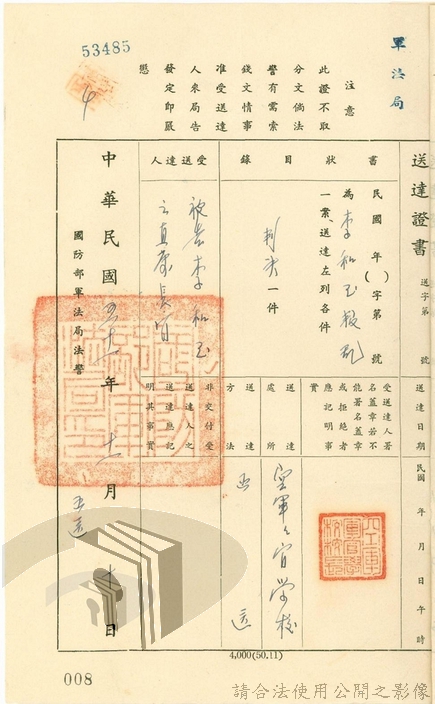 軍法局
53485
注意
此證不取
分文倘法
警有需索
錢文情事
准受送達
人來局告
發定即嚴
懲
送達證書
送字第 號
民國 年( )字第 號
為李和玉叛亂
一案、送達左列各件
書狀目錄
判決一件
受送達人
被告李和玉
送達日期
民國 年 月 日 午 時
受送達人署
名蓋章若不
能署名蓋章
或拒絕者
應記明事
實
送達處所
空軍官學校
送達方法
非交付受
送達人之
送達應記
明其事實
國防部軍法局法警
中華民國五十一年十二月 日
4,000(50.11)
008
請合法使用公開之影像